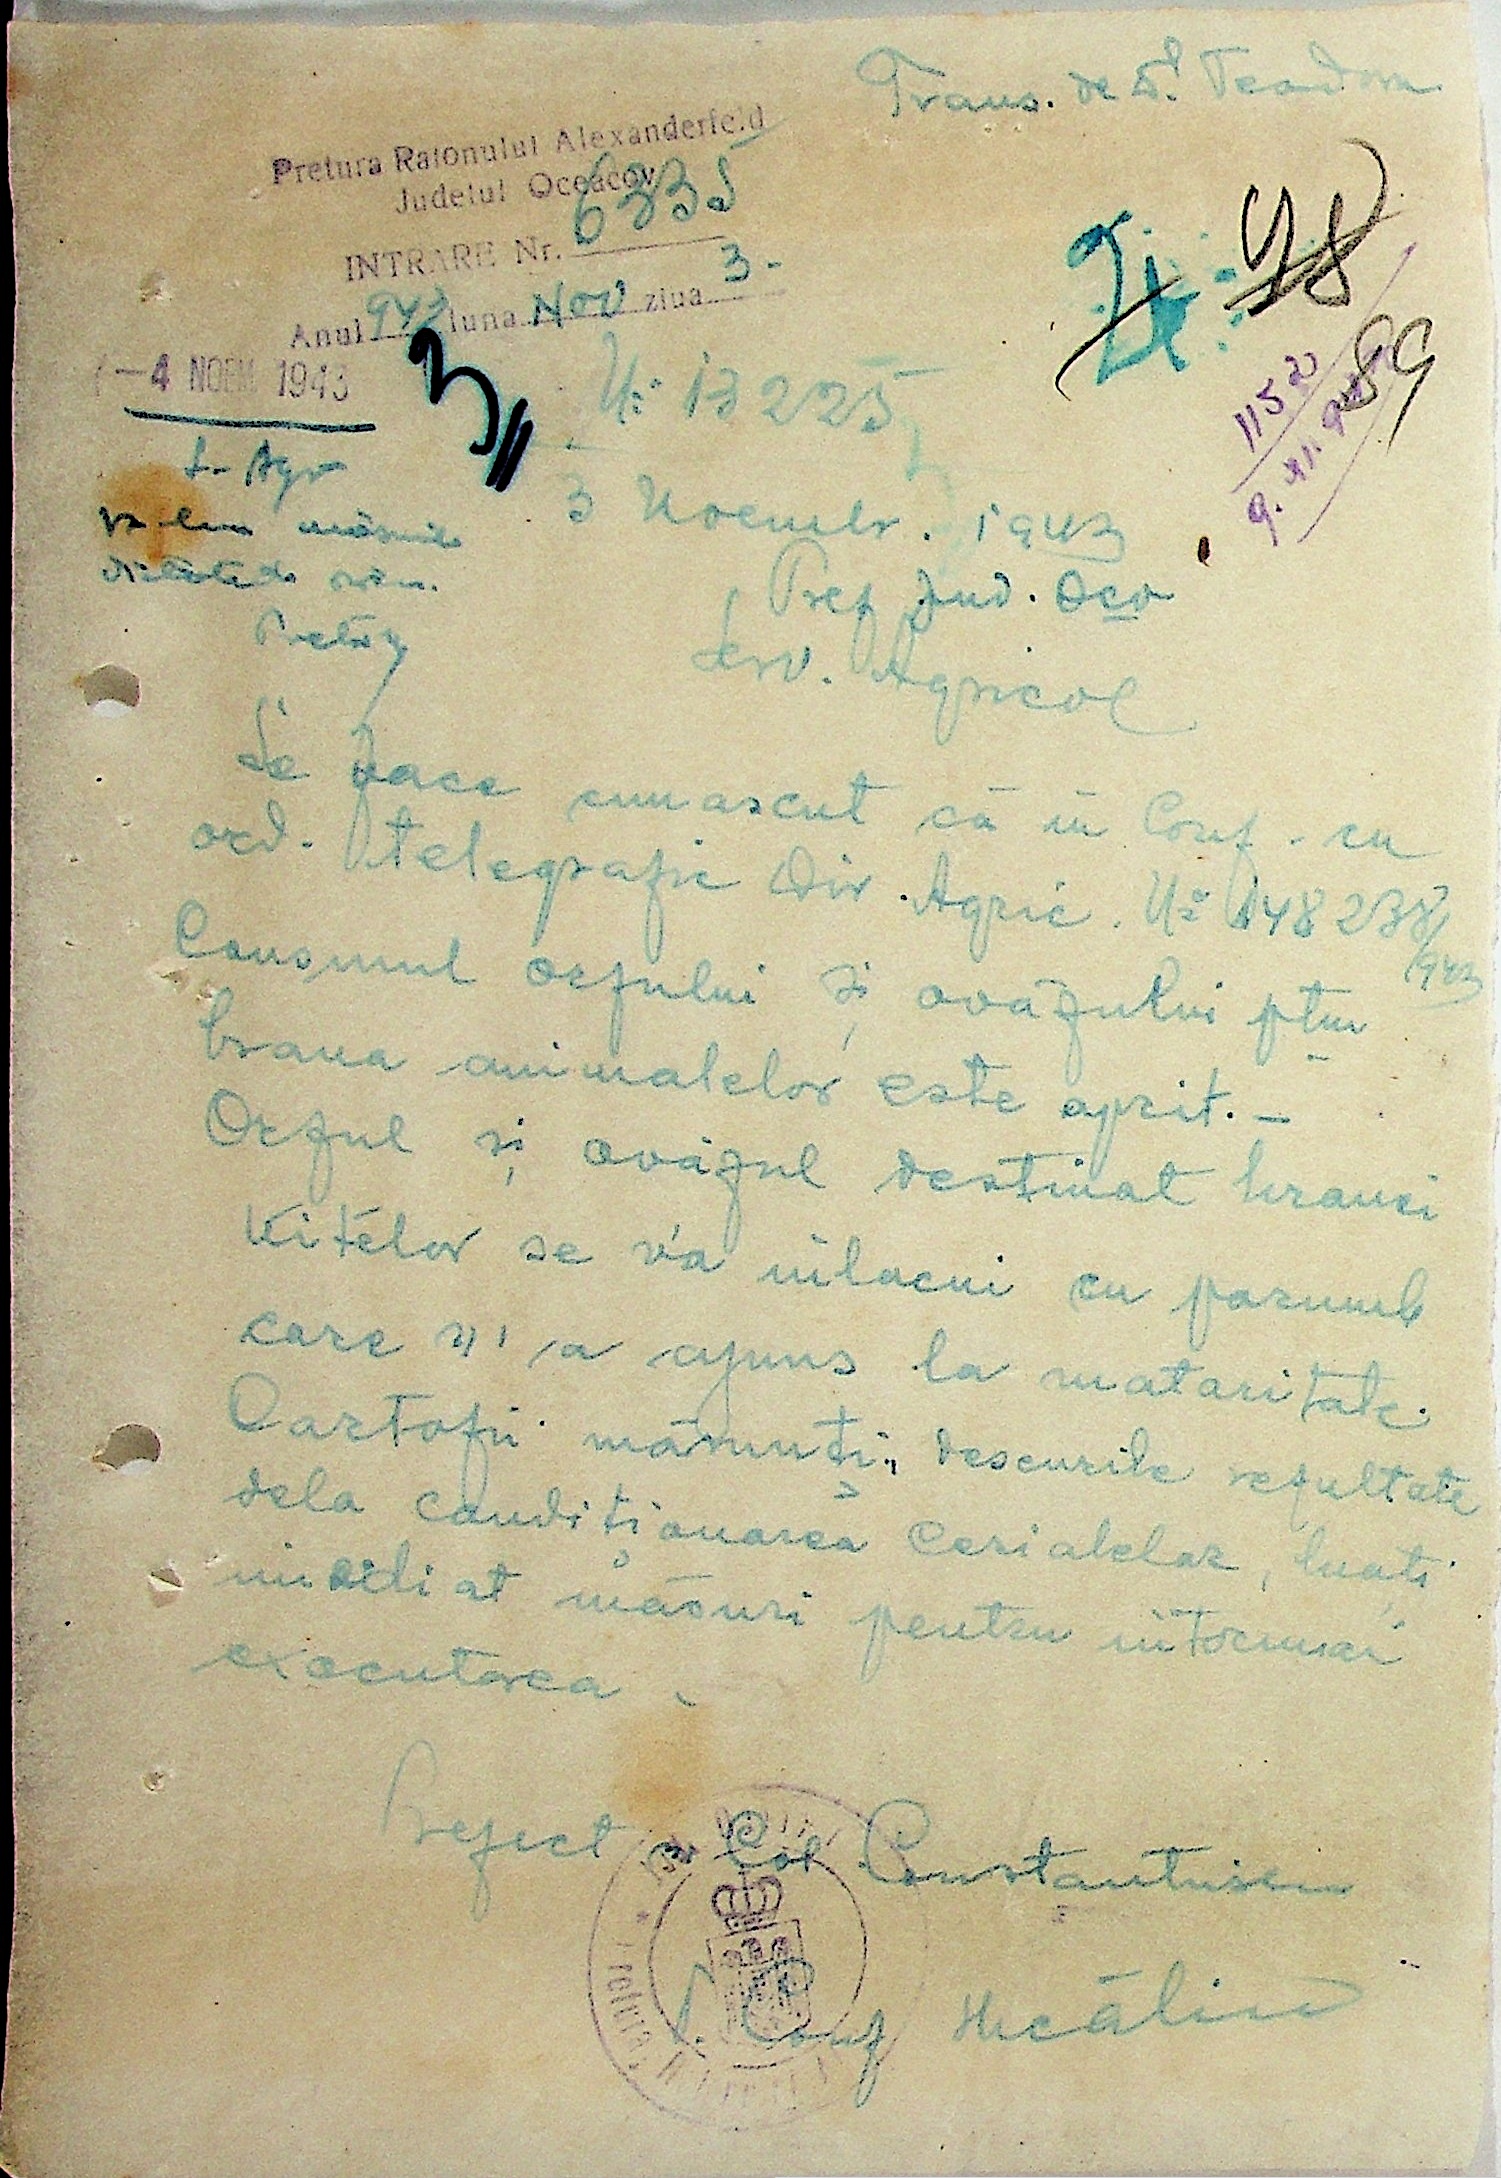 Trans. de D. Teodoru
Pretura Raionului Alexanderfeld
Judetul Oceacov
INTRARE Nr. 6335
Anul 943 luna Nov ziua 3-
-4 NOEM 1943
78
89
1152
9. XI. 943
S. Agr
№ 13225
3 Noembr. 1943
Pref Jud. Oco
Serv. Agricol
Se face cunascut că în Conf. cu
ord. telegrafic Dir. Agric. № 148238/943
Consumul orzului și ovăzului ptru
hrana animalelor este oprit.-
Orzul și ovăzul destinat hranei
vitelor se va înlocui cu porumb
care n'a ajuns la mataritate.
Cartofii mărunți, deseurile rezultate
dela condiționarea cerialelor, luați
imediat măsuri pentru întocmai
executarea.
Prefect Col Constantinescu
p. Conf Micăliu